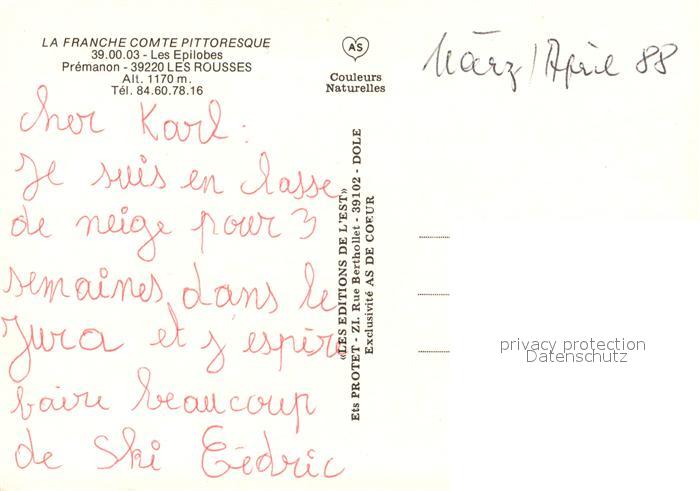 LA FRANCHE COMTE PITTORESQUE
39.00.03 - Les Epilobes
Prémanon - 39220 LES ROUSSES
Alt. 1170 m.
Tél. 84.60.78.16
AS
Couleurs
Naturelles
März / April 88
cher Karl :
Je suis en classe
de neige pour 3
semaines dans le
Jura et j'espère
faire beaucoup
de Ski Cédric
«LES EDITIONS DE L'EST»
Ets PROTET - ZI. Rue Berthollet - 39102 - DOLE
Exclusivité AS DE COEUR
privacy protection
Datenschutz